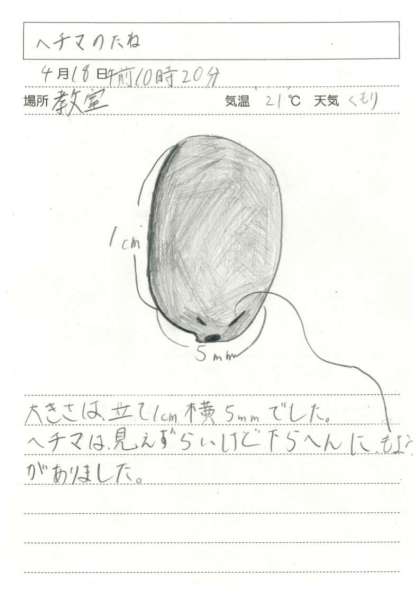 ヘチマのたね
4月18日午前10時20分
場所 教室 気温 21℃ 天気 くもり
1cm
5mm
大きさは、立て1cm横5mmでした。
ヘチマは、見えずらいけど下らへんに、もよう
がありました。